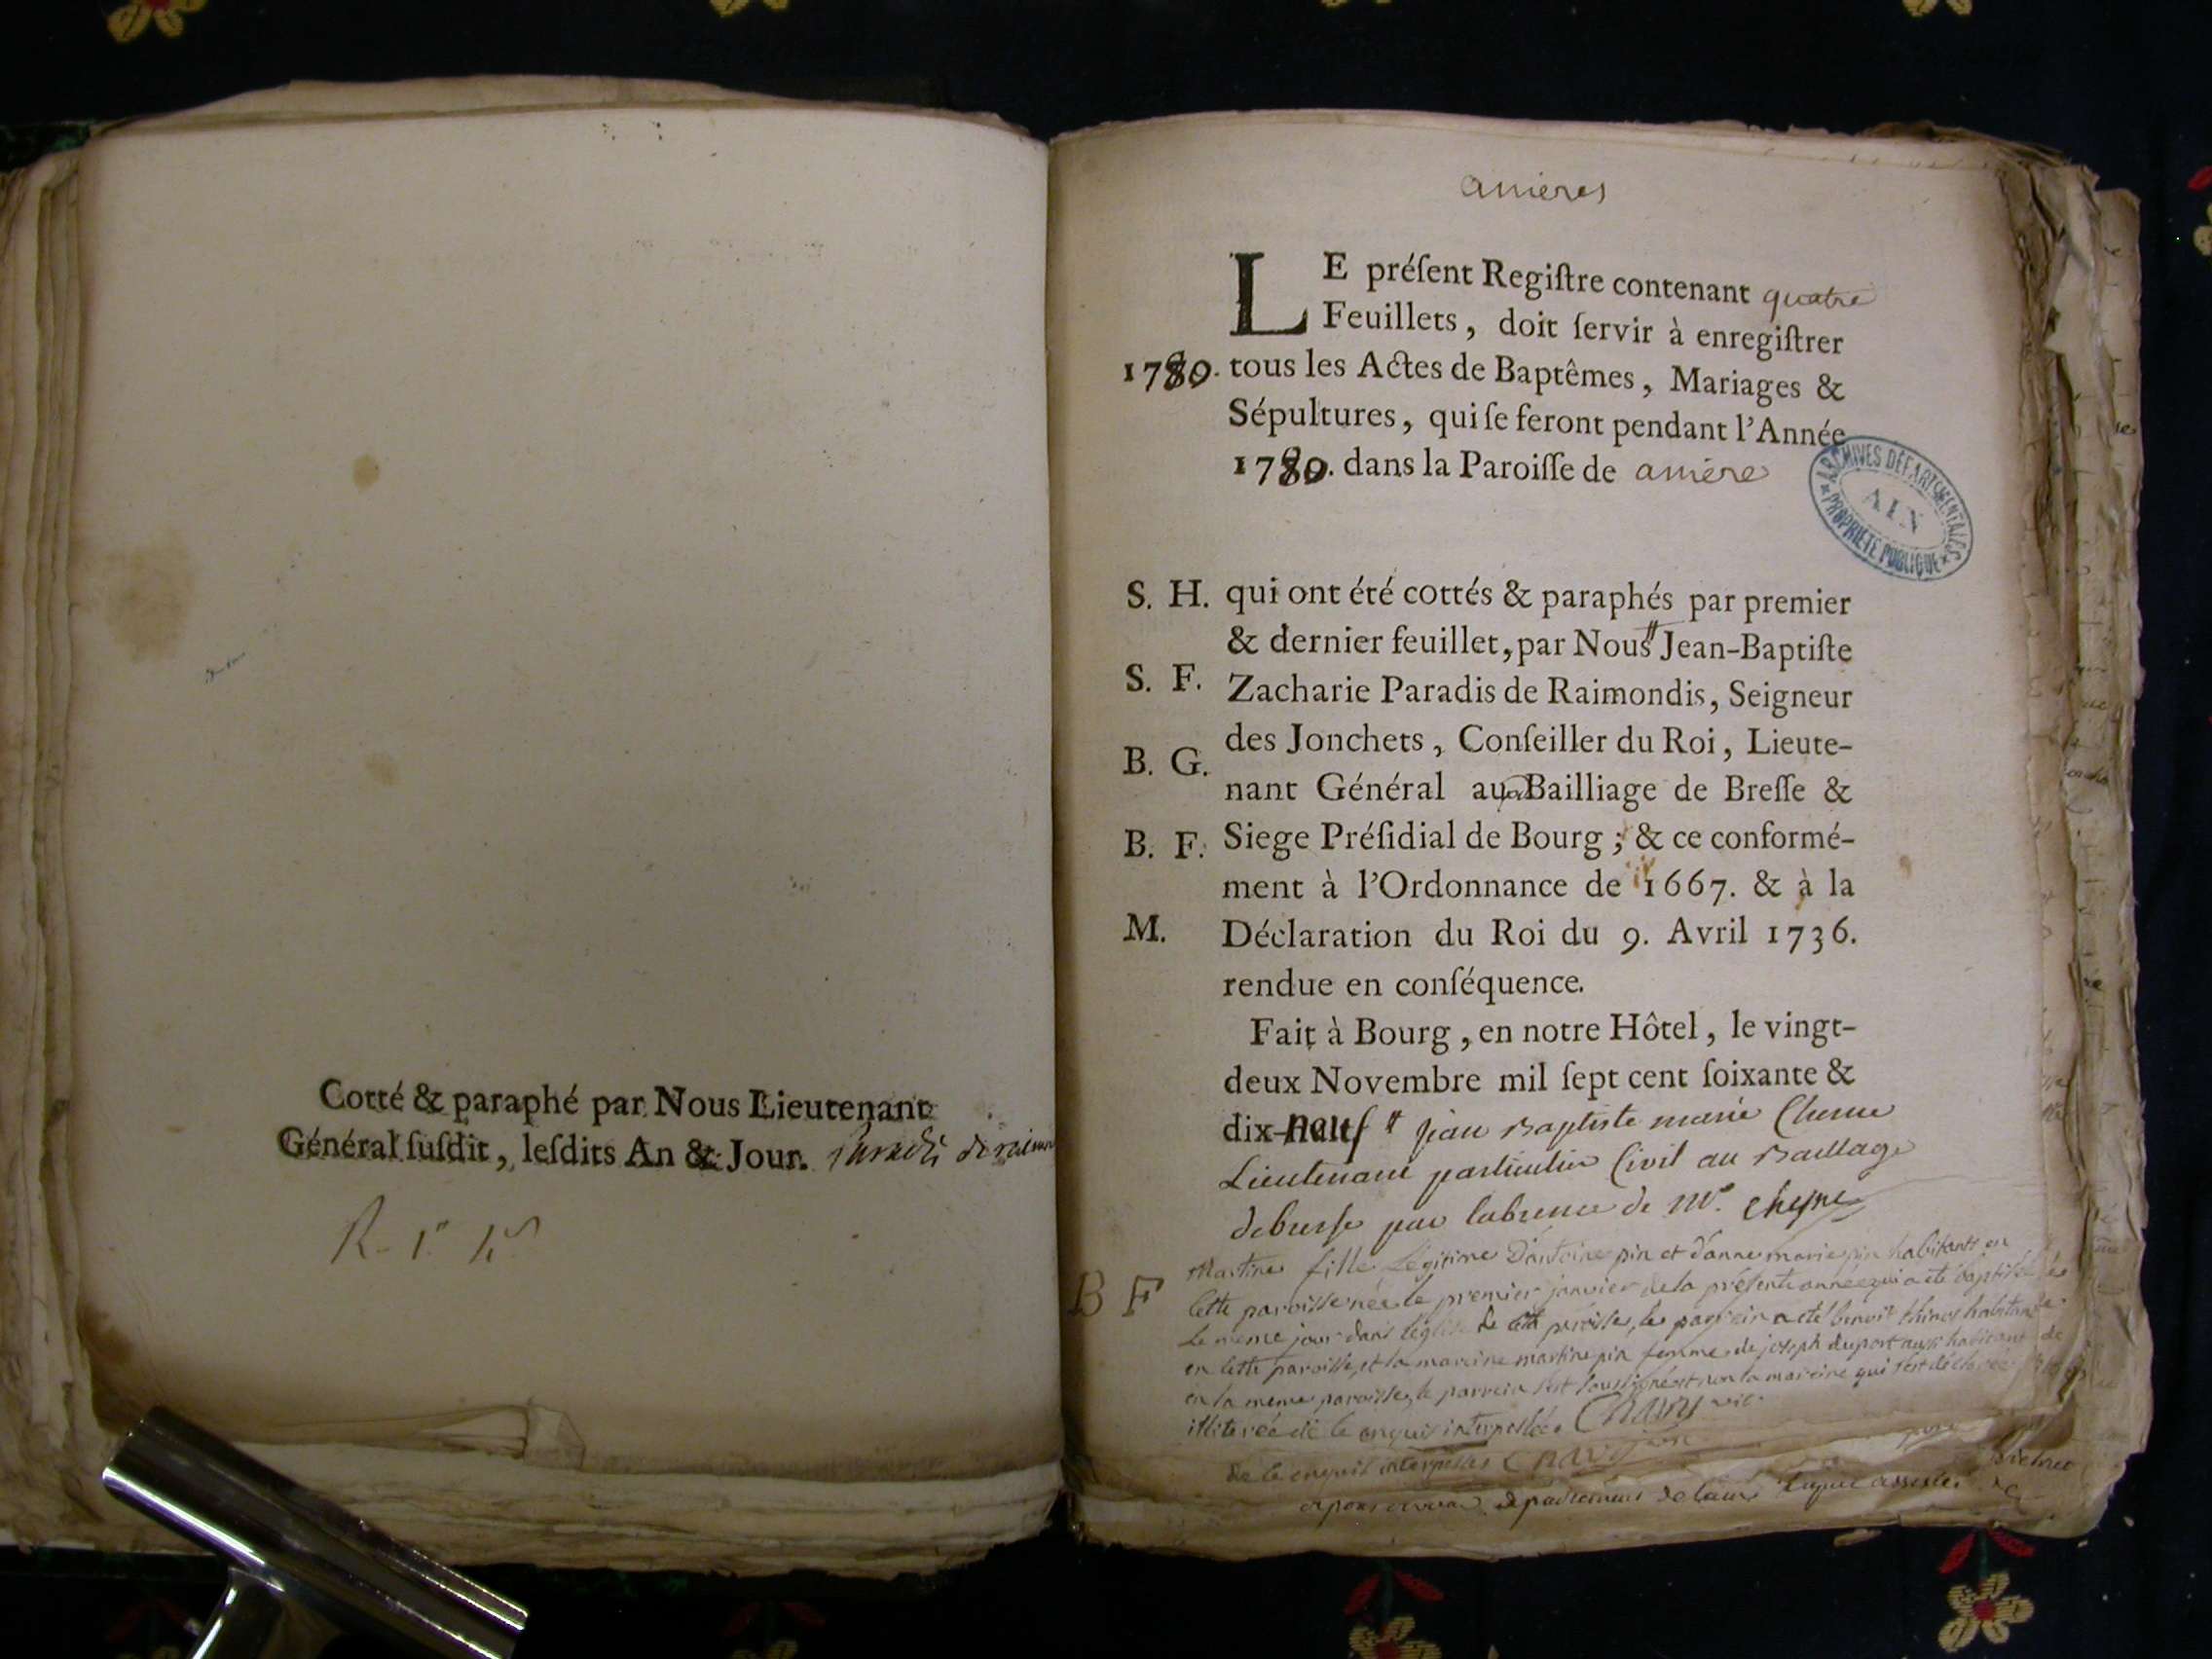 Cotté & paraphé par Nous Lieutenant
Général ſuſdit, leſdits An & Jour.
anieres
LE préſent Regiſtre contenant quatre
Feuillets, doit ſervir à enregiſtrer
1780. tous les Actes de Baptêmes, Mariages &
Sépultures, qui ſe feront pendant l'Année
1780. dans la Paroiſſe de aniere
ARCHIVES DÉPARTEMENTALES
AIN
PROPRIÉTÉ PUBLIQUE
S. H. qui ont été cottés & paraphés par premier
& dernier feuillet, par Nous Jean-Baptiſte
S. F. Zacharie Paradis de Raimondis, Seigneur
des Jonchets, Conſeiller du Roi, Lieute-
B. G. nant Général au Bailliage de Breſſe &
B. F. Siege Préſidial de Bourg ; & ce conformé-
ment à l'Ordonnance de 1667. & à la
M. Déclaration du Roi du 9. Avril 1736.
rendue en conſéquence.
Fait à Bourg, en notre Hôtel, le vingt-
deux Novembre mil ſept cent ſoixante &
dix-neuf jean Baptiste marie
Lieutenant particulier Civil au Bailliage
de bresse par labsence de Mr.
B F Martine fille Légitime d'antoine pin et d'anne marie pin habitants en
cette paroisse née le premier janvier de la présente année qui a été baptisée
le meme jour dans l'église de cette paroisse, le parrein a eté benoit habitant
en cette paroisse, et la mareine martine pin femme de joseph duport aussi habitant
en la meme paroisse, le parrein s'est soussigné et non la mareine qui s'est déclarée
illiterée de ce enquise interpellée
de ce enquis interpellés